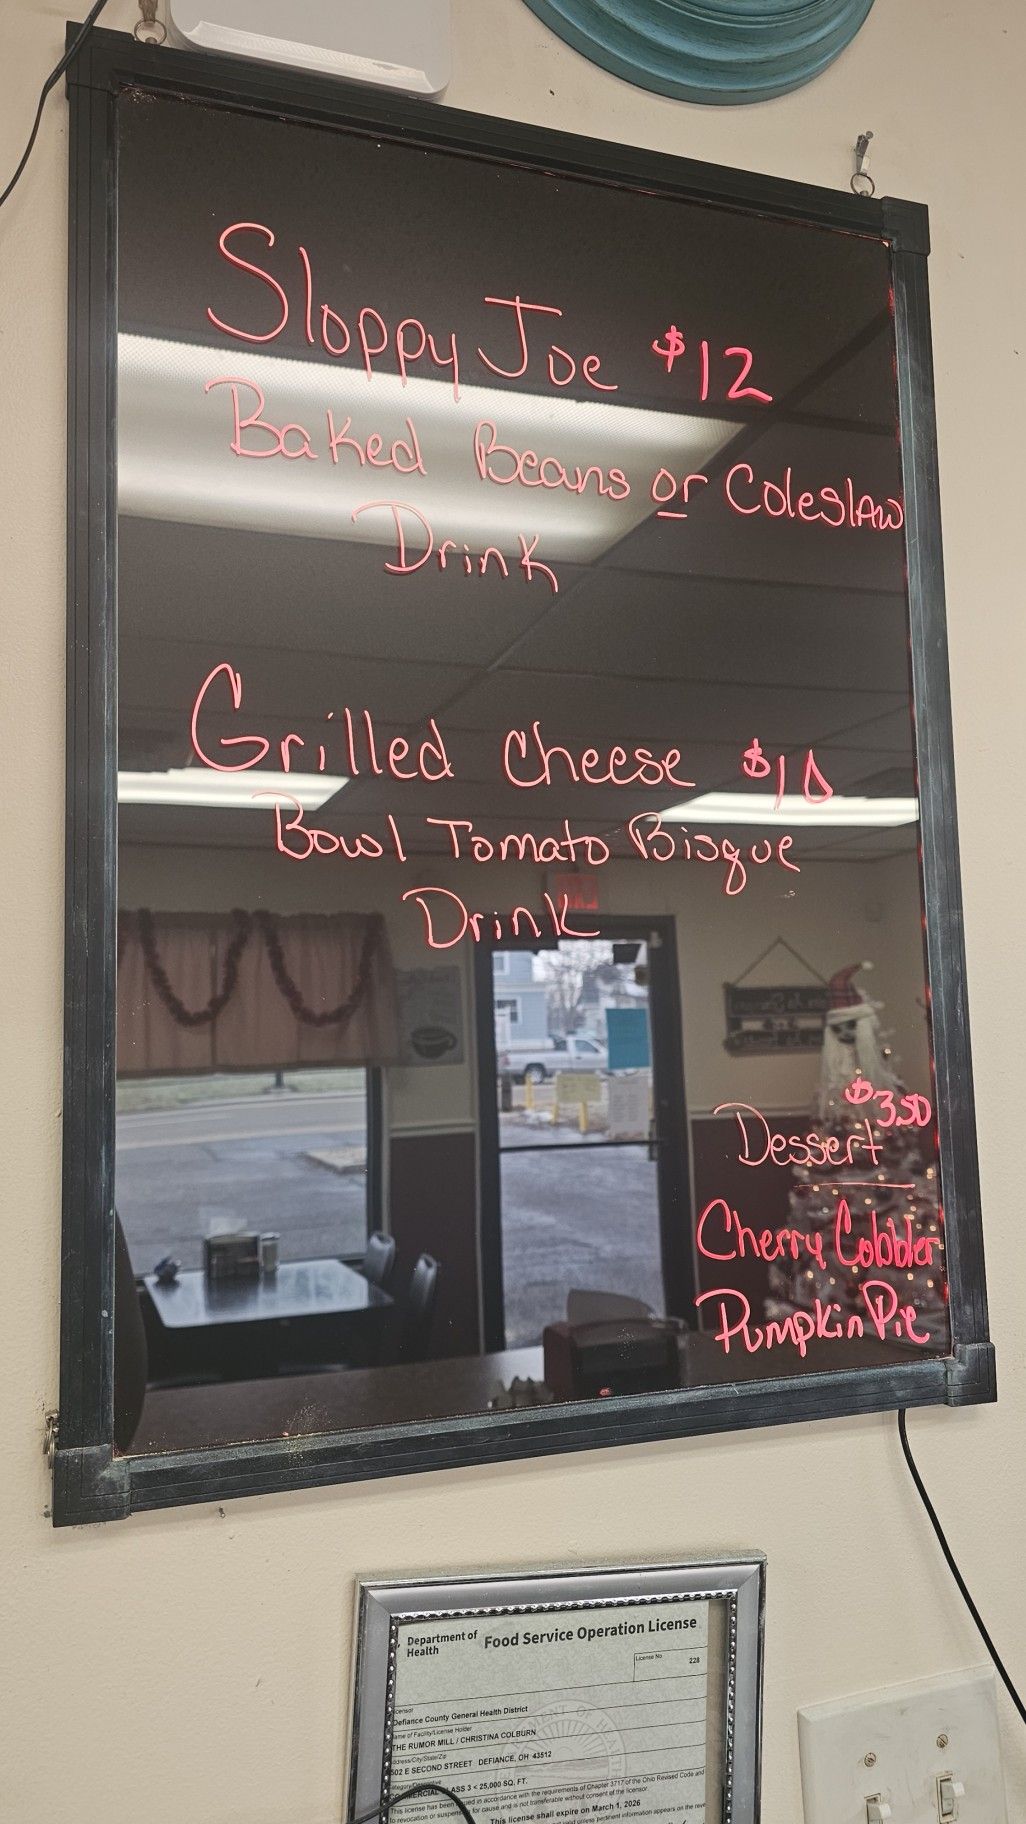 Sloppy Joe $12
Baked Beans or Coleslaw
Drink
Grilled Cheese $10
Bowl Tomato Bisque
Drink
$3.50
Dessert
Cherry Cobbler
Pumpkin Pie
Department of
Health
Food Service Operation License
License No
228
Defiance County General Health District
Name of Facility/License Holder
THE RUMOR MILL / CHRISTINA COLBURN
Address/City/State/Zip
502 E SECOND STREET DEFIANCE, OH 43512
CLASS 3 < 25,000 SQ. FT.
This license has been issued in accordance with the requirements of Chapter 3717 of the Ohio Revised Code and
to revocation or suspension for cause and is not transferable without consent of the licensor.
This license shall expire on March 1, 2026